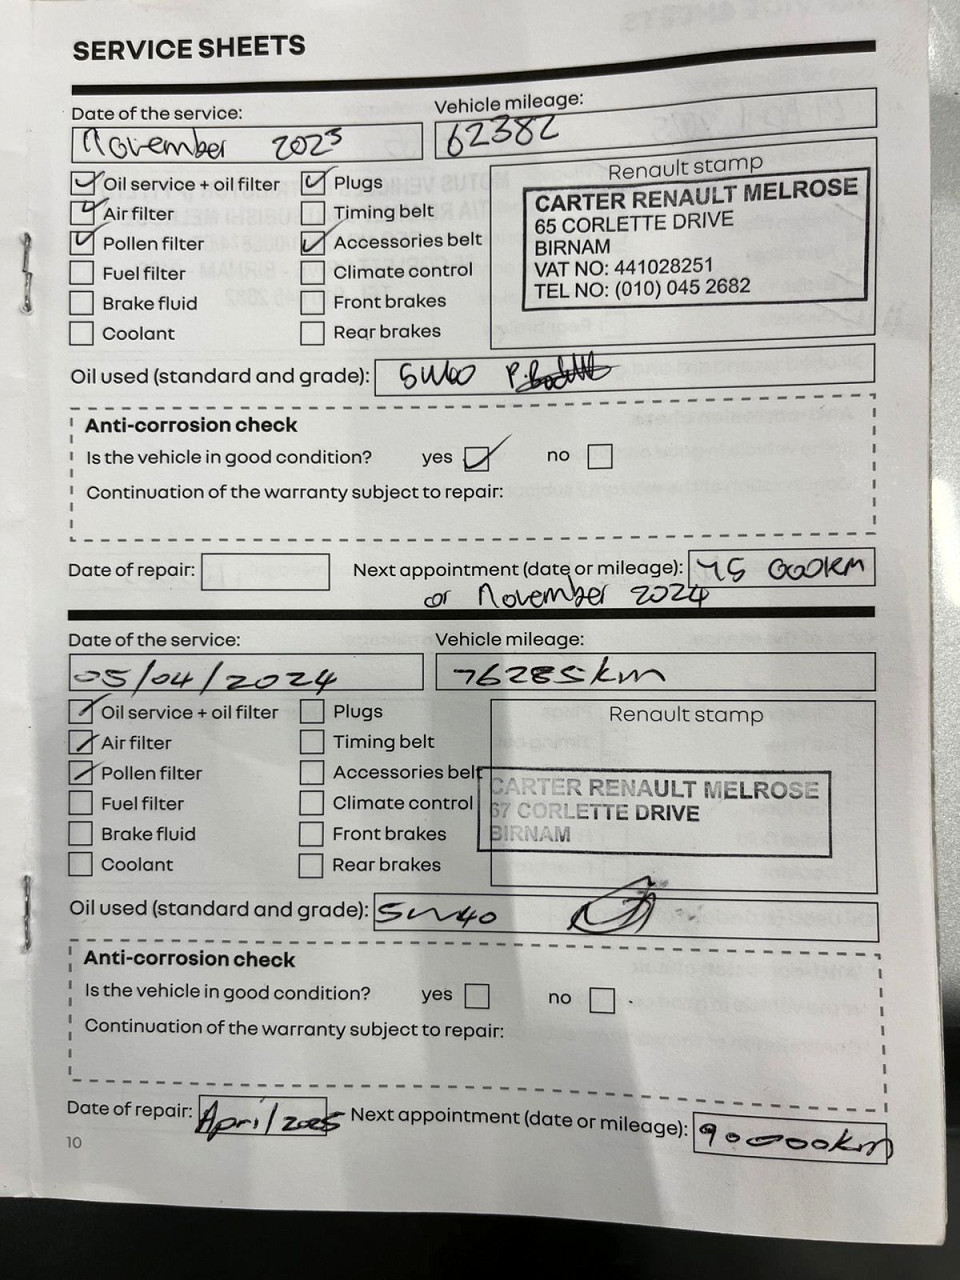 SERVICE SHEETS
Date of the service: Vehicle mileage:
November 2023 62382
Oil service + oil filter Plugs Renault stamp
Air filter Timing belt
Pollen filter Accessories belt
Fuel filter Climate control
Brake fluid Front brakes
Coolant Rear brakes
CARTER RENAULT MELROSE
65 CORLETTE DRIVE
BIRNAM
VAT NO: 441028251
TEL NO: (010) 045 2682
Oil used (standard and grade): 5W40
Anti-corrosion check
Is the vehicle in good condition? yes no
Continuation of the warranty subject to repair:
Date of repair: Next appointment (date or mileage): 75 000KM
or November 2024
Date of the service: Vehicle mileage:
05/04/2024 76285km
Oil service + oil filter Plugs Renault stamp
Air filter Timing belt
Pollen filter Accessories belt
Fuel filter Climate control
Brake fluid Front brakes
Coolant Rear brakes
CARTER RENAULT MELROSE
67 CORLETTE DRIVE
BIRNAM
Oil used (standard and grade): 5W40
Anti-corrosion check
Is the vehicle in good condition? yes no
Continuation of the warranty subject to repair:
Date of repair: April/2025 Next appointment (date or mileage): 90000km
10